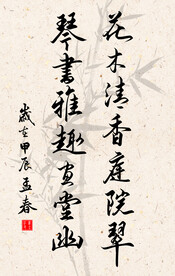 花木清香庭院翠
琴書雅趣宜堂幽
歲在甲辰孟春